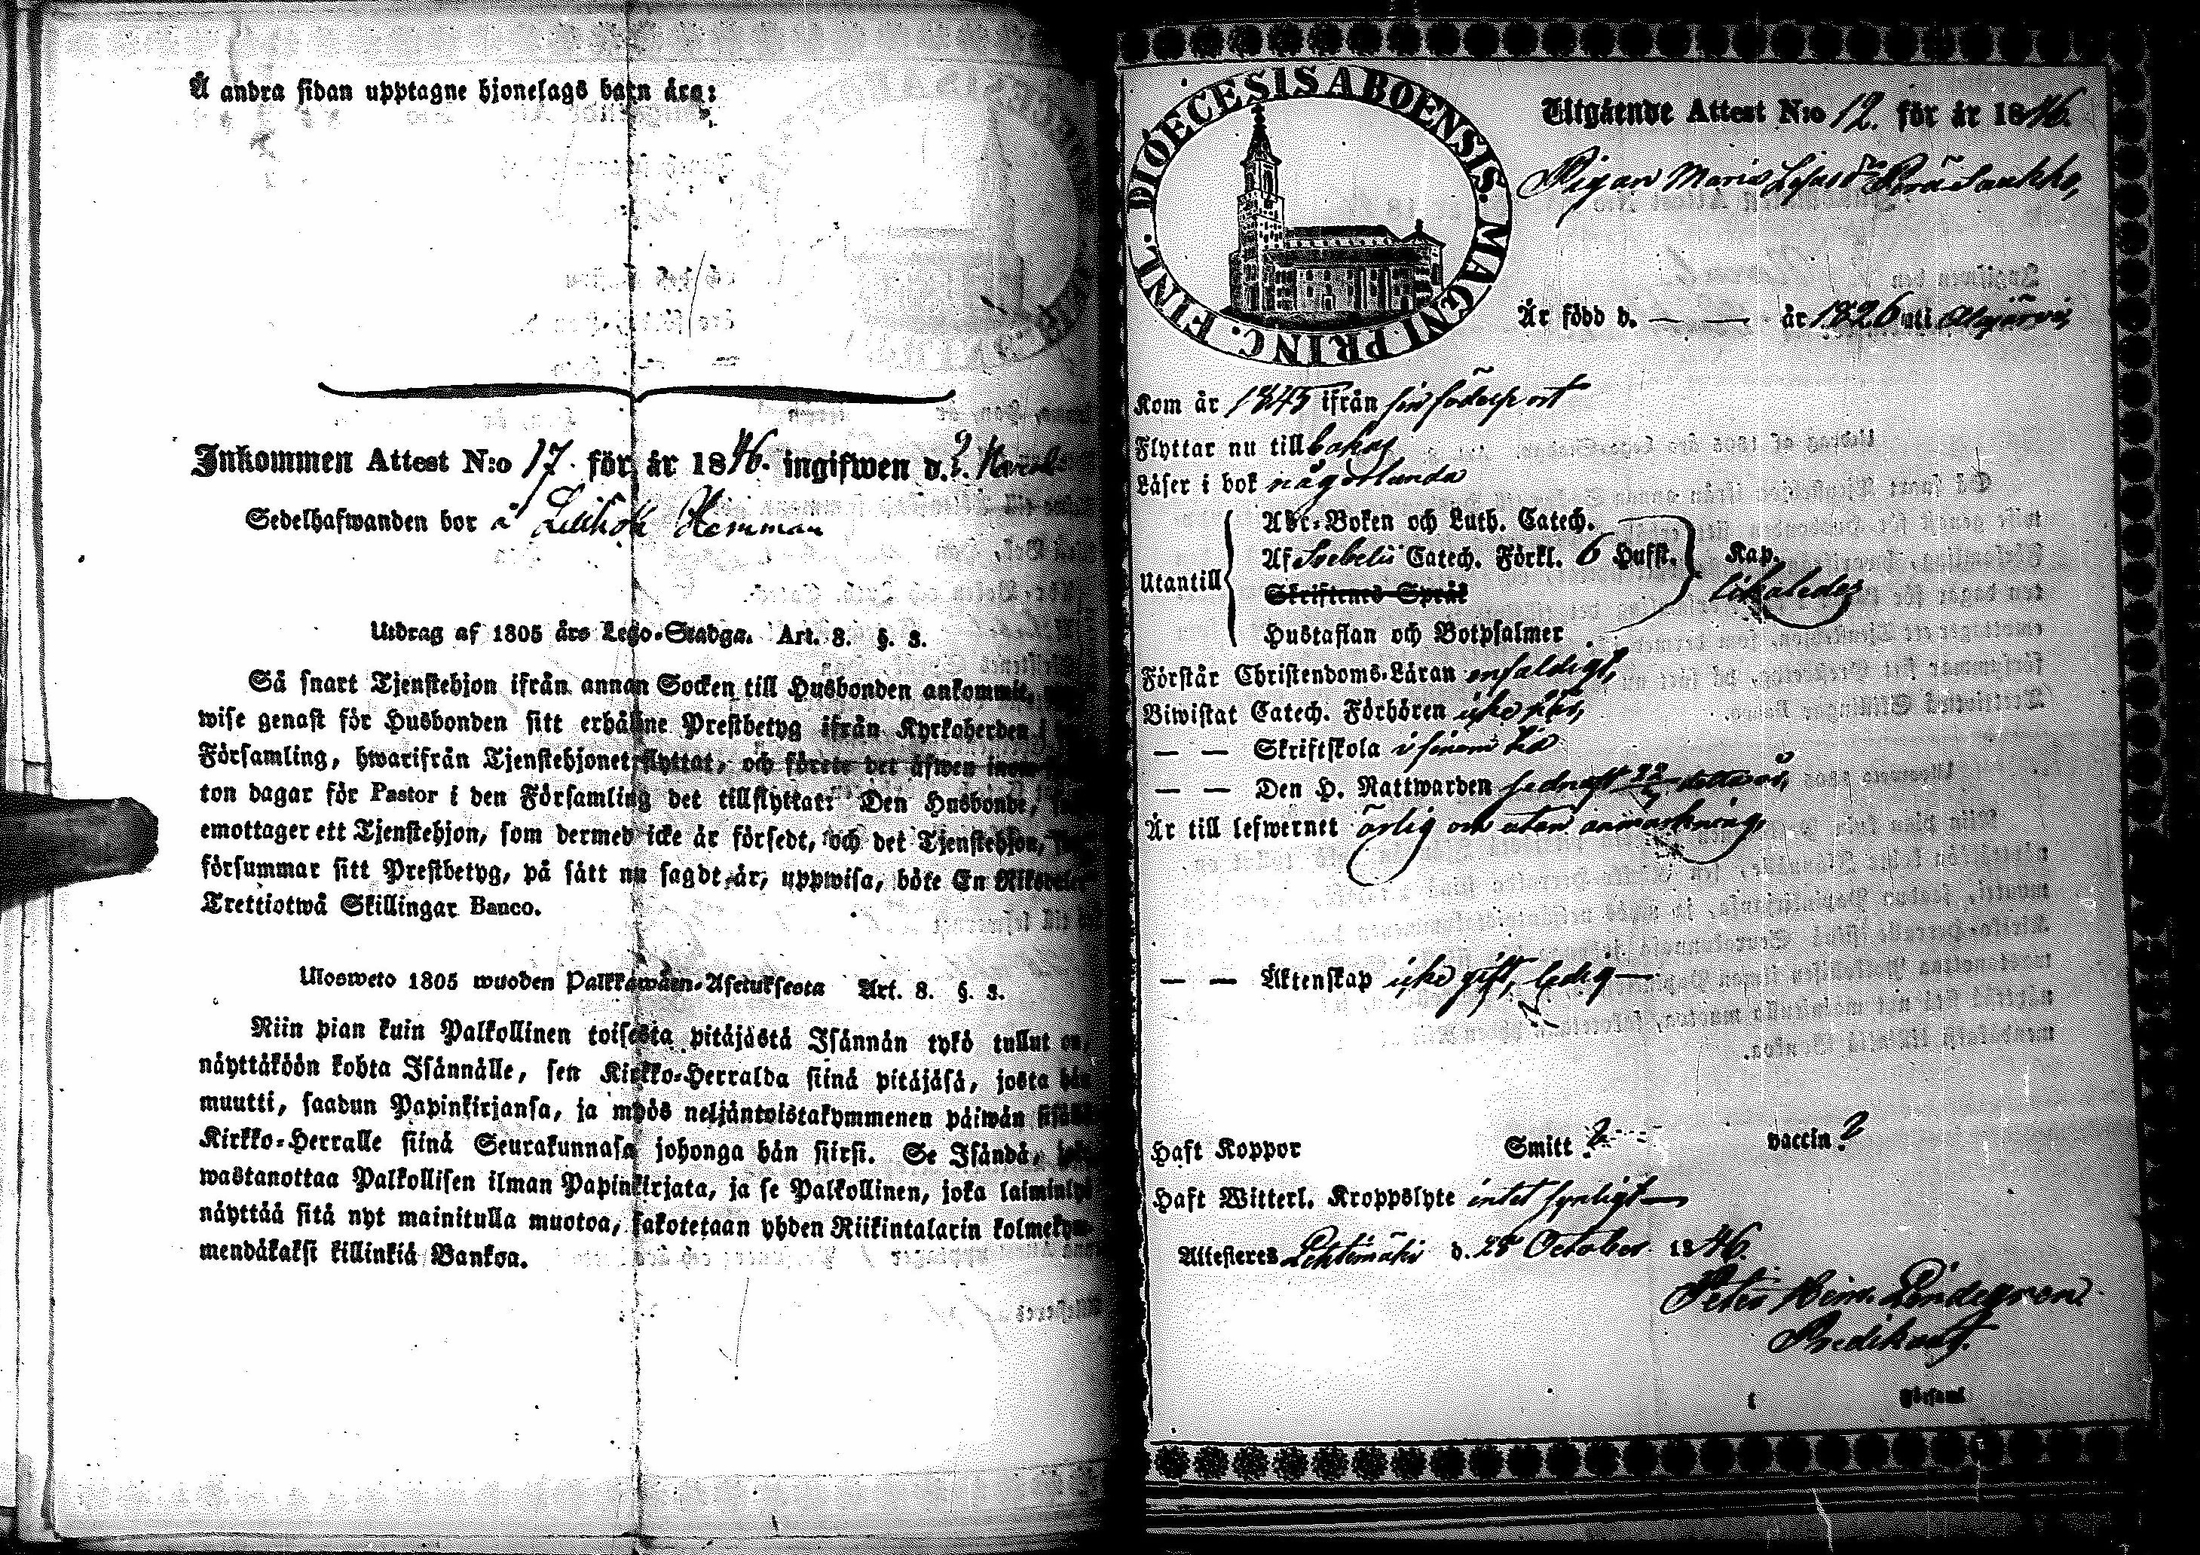 Å andra sidan upptagne hjonelags barn äro:
Inkommen Attest N:o 17. för år 1846. ingifwen d.
Sedelhafwanden bor å Hemman
Utdrag af 1805 års Lego-Stadga. Art. 8. §. 3.
Så snart Tjenstehjon ifrån annan Socken till Husbonden ankommit,
wise genast för Husbonden sitt erhållne Prestbetyg ifrån Kyrkoherden i
Församling, hwarifrån Tjenstehjonet flyttat, och förete det äfwen inom
ton dagar för Pastor i den Församling det tillflyttat: Den Husbonde,
emottager ett Tjenstehjon, som dermed icke är försedt, och det Tjenstehjon,
försummar sitt Prestbetyg, på sätt nu sagdt är, uppwisa, böte En Riksdaler
Trettiotwå Skillingar Banco.
Ulosweto 1805 wuoden Palkkawäen-Asetuksesta Art. 8. §. 3.
Niin pian kuin Palkollinen toisesta pitäjästä Isännän tykö tullut on,
näyttäköön kohta Isännälle, sen Kirkko-Herralda siinä pitäjäsä, josta hän
muutti, saadun Papinkirjansa, ja myös neljäntoistakymmenen päiwän sisällä
Kirkko-Herralle siinä Seurakunnasa johonga hän siirsi. Se Isändä,
wastanottaa Palkollisen ilman Papinkirjata, ja se Palkollinen, joka laiminlyö
näyttää sitä nyt mainitulla muotoa, sakotetaan yhden Riikintalarin kolmekym-
mendäkaksi killinkiä Bankoa.
DIOECESIS ABOENSIS. MAGNI. PRINC. FINL.
Utgående Attest N:o 12. för år 1846.
Pigan Maria Perä Saukko,
Är född d. — — år 1826 uti Alajärvi,
Kom år 1845 ifrån sin födelseort
Flyttar nu till bakas
Läser i bok någorlunda
Utantill
Abc-Boken och Luth. Catech.
Af Svebelii Catech. Förkl. 6 Hufst. Kap.
Skriftenes Språk
likaledes
Hustaflan och Botpsalmer
Förstår Christendoms-Läran enfaldigt,
Biwistat Catech. Förhören icke här,
— — Skriftskola i sinom tid
— — Den H. Nattwarden sednast detta år,
Är till lefwernet ärlig och utan anmärkning,
— — Äktenskap icke gift, ledig —
Haft Koppor Smitt ? vaccin ?
Haft Witterl. Kroppslyte intet synligt —
Attesteres Lehtimäki d. 25 October 1846.
Petter Heinr. Lindegren.
Predikant.